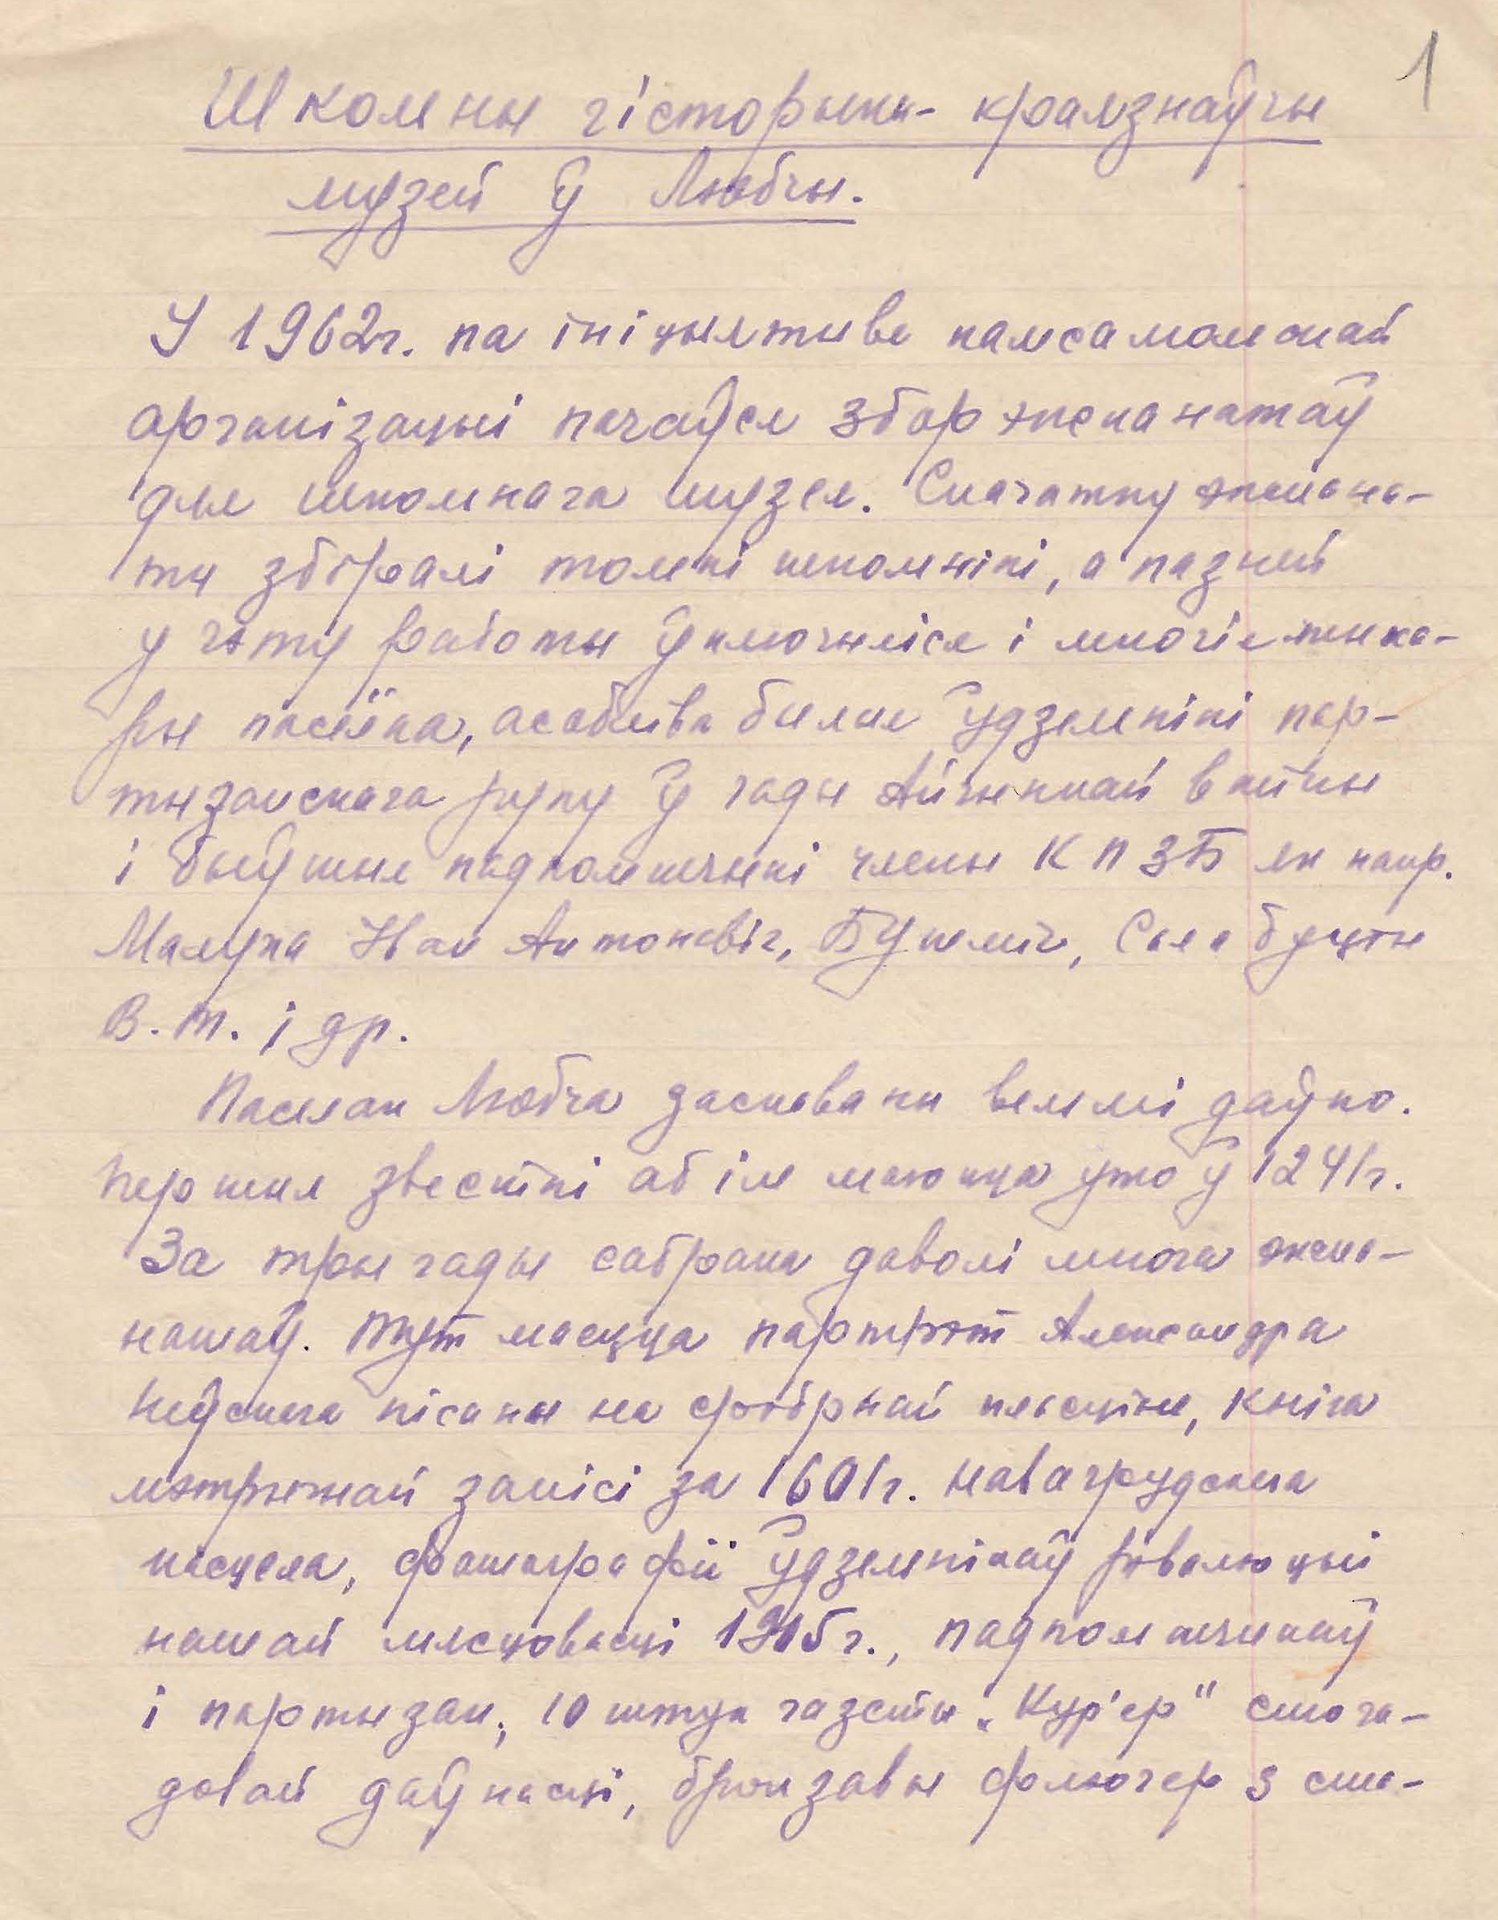 1
Школьны гісторыка-краязнаўчы
музей ў Любчы.
У 1962г. па ініцыятыве камсамольскай
арганізацыі пачаўся збор экспанатаў
для школьнага музея. Спачатку экспана-
ты збіралі толькі школьнікі, а пазней
у гэту работу ўключыліся і многія жыха-
ры пасёлка, асабліва былыя ўдзельнікі пар-
тызанскага руху ў гады Айчыннай вайны
і быўшыя падпольшчыкі члены КПЗБ як напр.
Малуха Іван Антонавіч, Бушміч,
В.т. і др.
Пасёлак Любча заснаваны вельмі даўно.
Першыя звесткі аб ім маюцца ужо ў 1241г.
За тры гады сабрана даволі многа экспа-
натаў. Тут маецца партрэт Александра
Неўскага пісаны на сярэбрнай пласціне, кніга
мэтрычнай запісі за 1601г. Навагрудскага
касцела, фатаграфіі ўдзельнікаў рэвалюцыі
нашай мясцовасці 1905г., падпольшчыкаў
і партызан, 10 штук газеты „Кур'ер" стога-
довай даўнасці, бронзавы флюгер з ста-